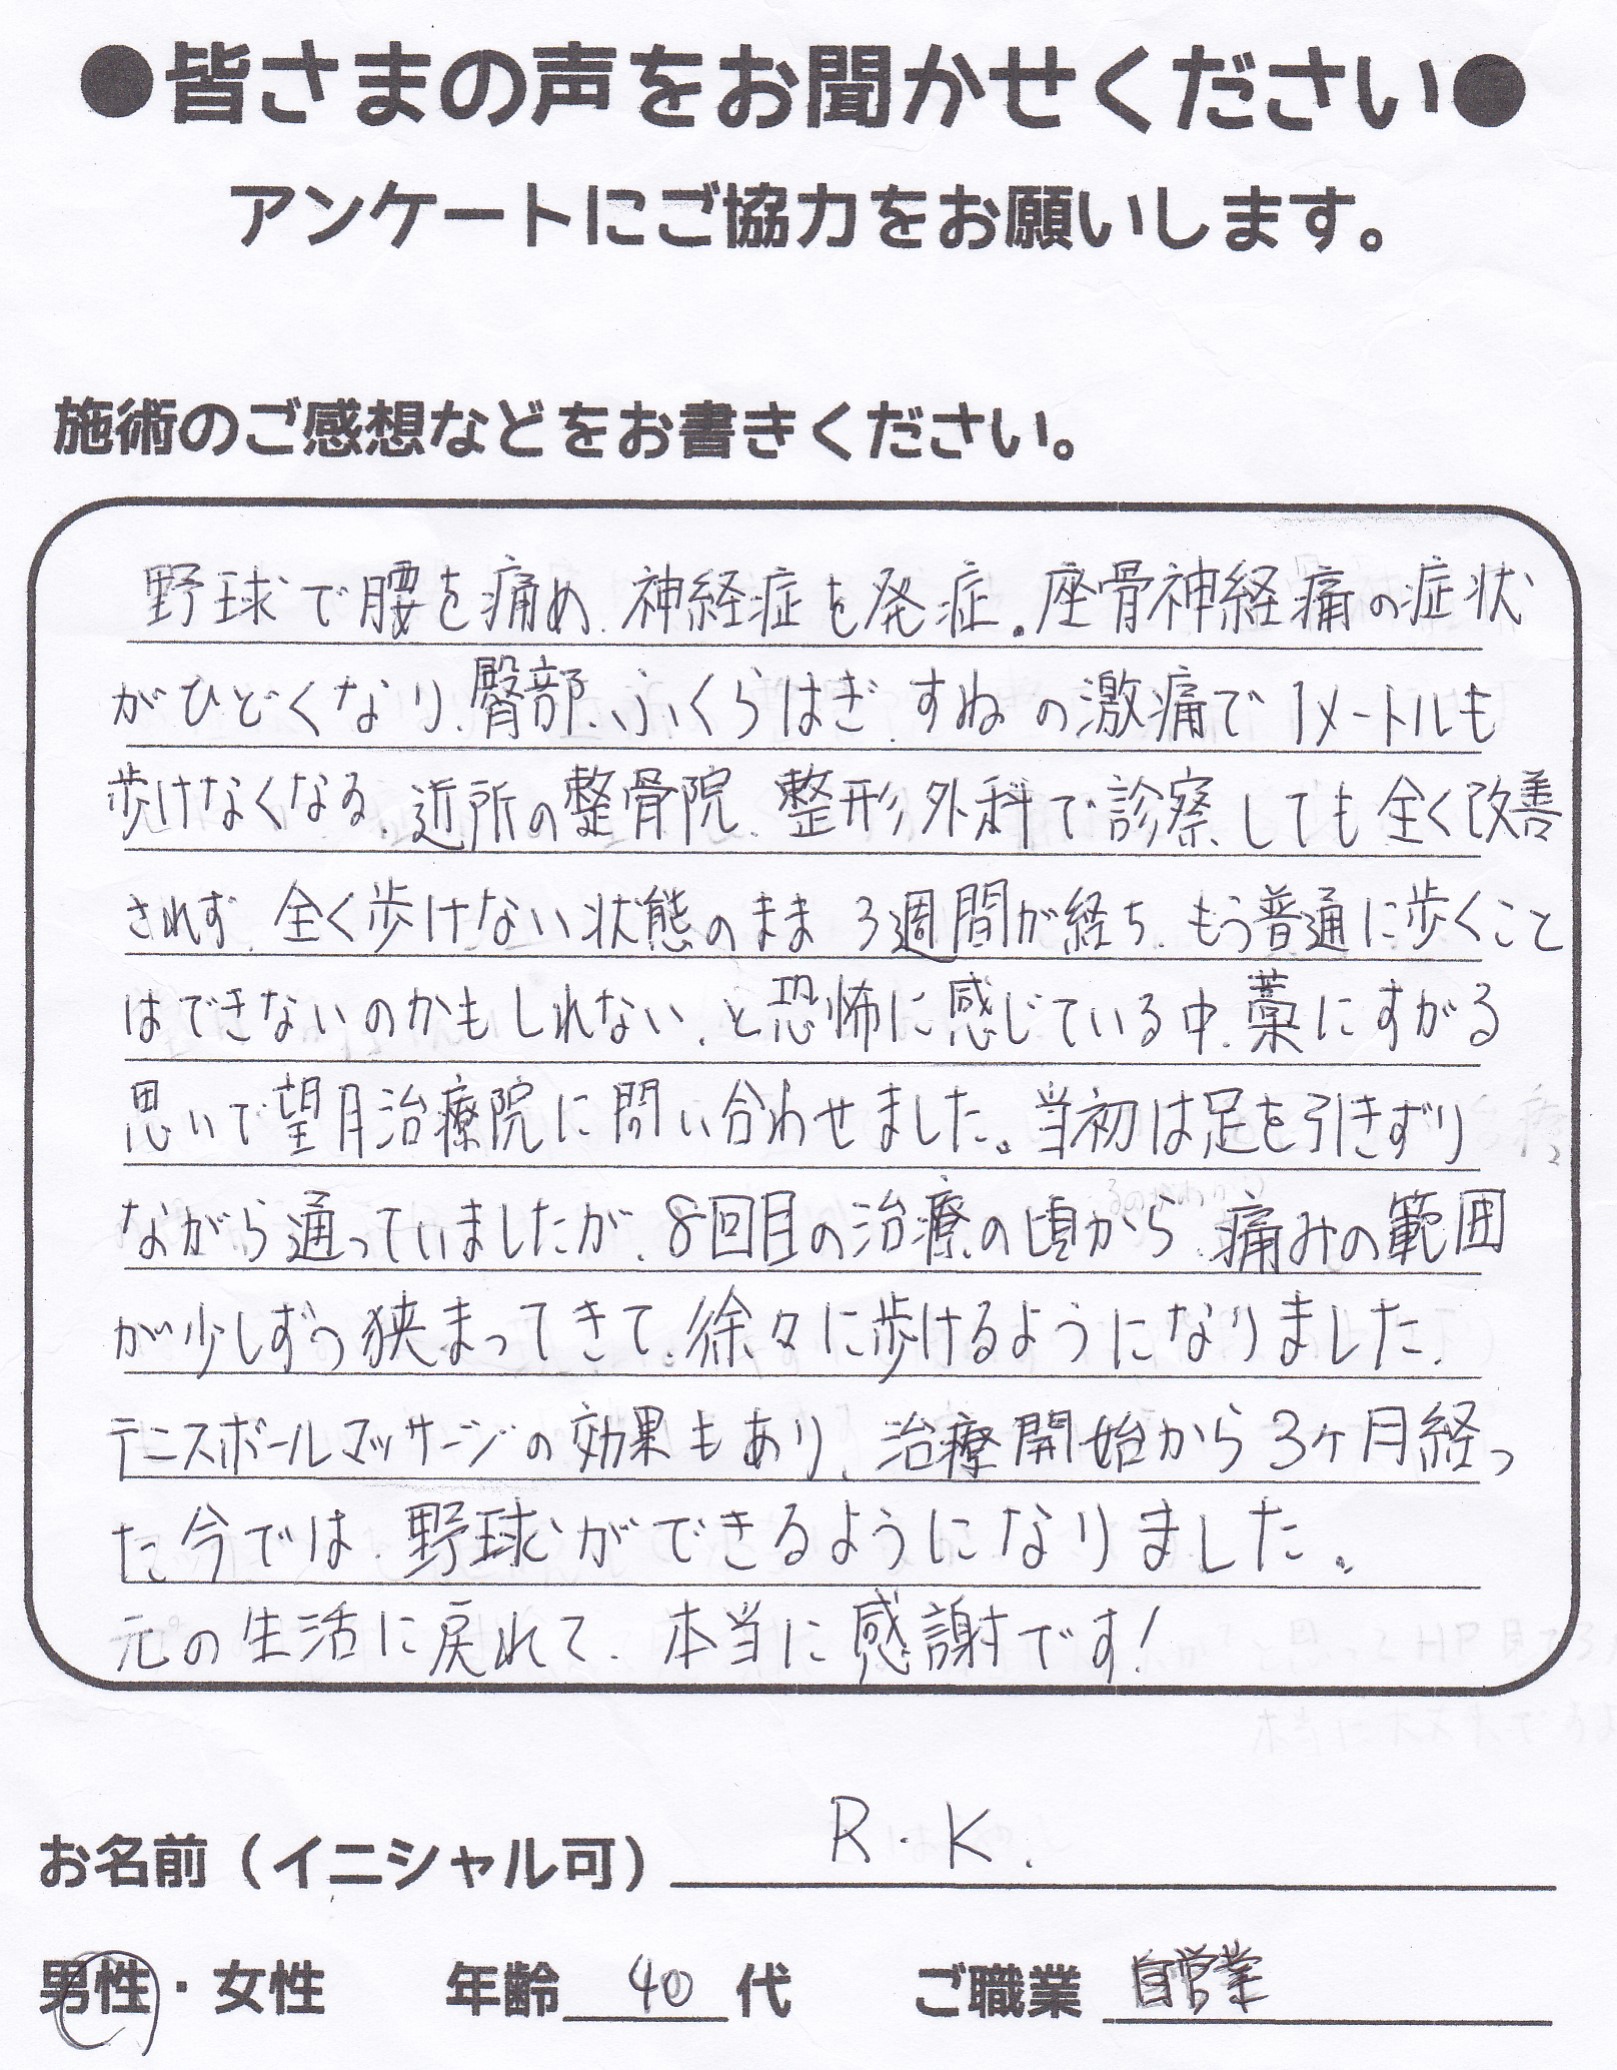 ●皆さまの声をお聞かせください●
アンケートにご協力をお願いします。
施術のご感想などをお書きください。
野球で腰を痛め、神経症を発症。座骨神経痛の症状
がひどくなり、臀部、ふくらはぎ、すねの激痛で1メートルも
歩けなくなる。近所の整骨院、整形外科で診察しても全く改善
されず、全く歩けない状態のまま3週間が経ち、もう普通に歩くこと
はできないのかもしれない、と恐怖に感じている中、藁にすがる
思いで望月治療院に問い合わせました。当初は足を引きずり
ながら通っていましたが、8回目の治療の頃から、痛みの範囲
が少しずつ狭まってきて、徐々に歩けるようになりました。
テニスボールマッサージの効果もあり、治療開始から3ヶ月経っ
た今では、野球ができるようになりました。
元の生活に戻れて、本当に感謝です!
お名前（イニシャル可） R.K.
男性・女性 年齢 40 代 ご職業 自営業